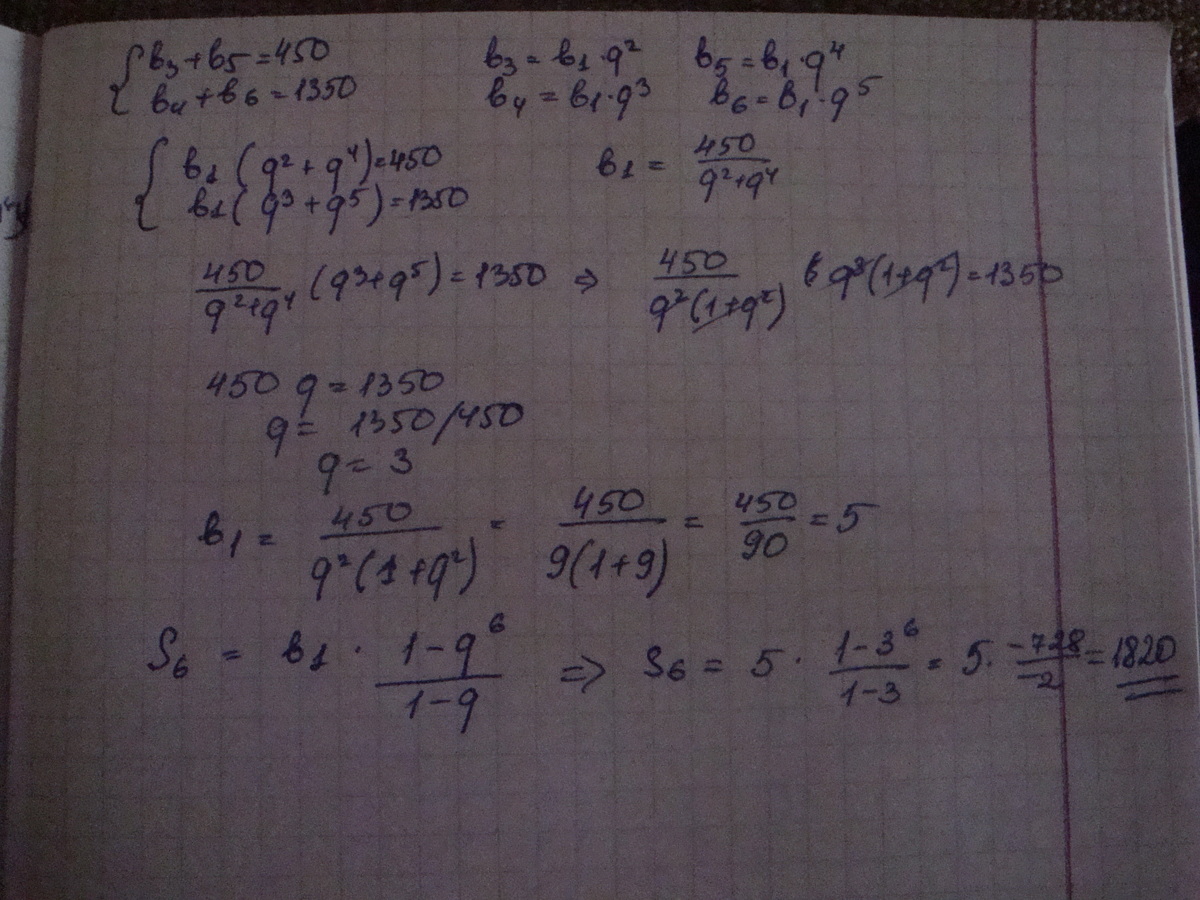 { b₃ + b₅ = 450    b₃ = b₁ · q²    b₅ = b₁ · q⁴
{ b₄ + b₆ = 1350    b₄ = b₁ · q³    b₆ = b₁ · q⁵
{ b₁ (q² + q⁴) = 450    b₁ = 450/(q²+q⁴)
{ b₁ (q³ + q⁵) = 1350
450/(q²+q⁴) (q³+q⁵) = 1350 ⇒ 450/(q²(1+q²)) q³(1+q²) = 1350
450 q = 1350
q = 1350/450
q = 3
b₁ = 450/(q²(1+q²)) = 450/(9(1+9)) = 450/90 = 5
S₆ = b₁ · (1-q⁶)/(1-q) ⇒ S₆ = 5 · (1-3⁶)/(1-3) = 5 · (-728)/(-2) = 1820